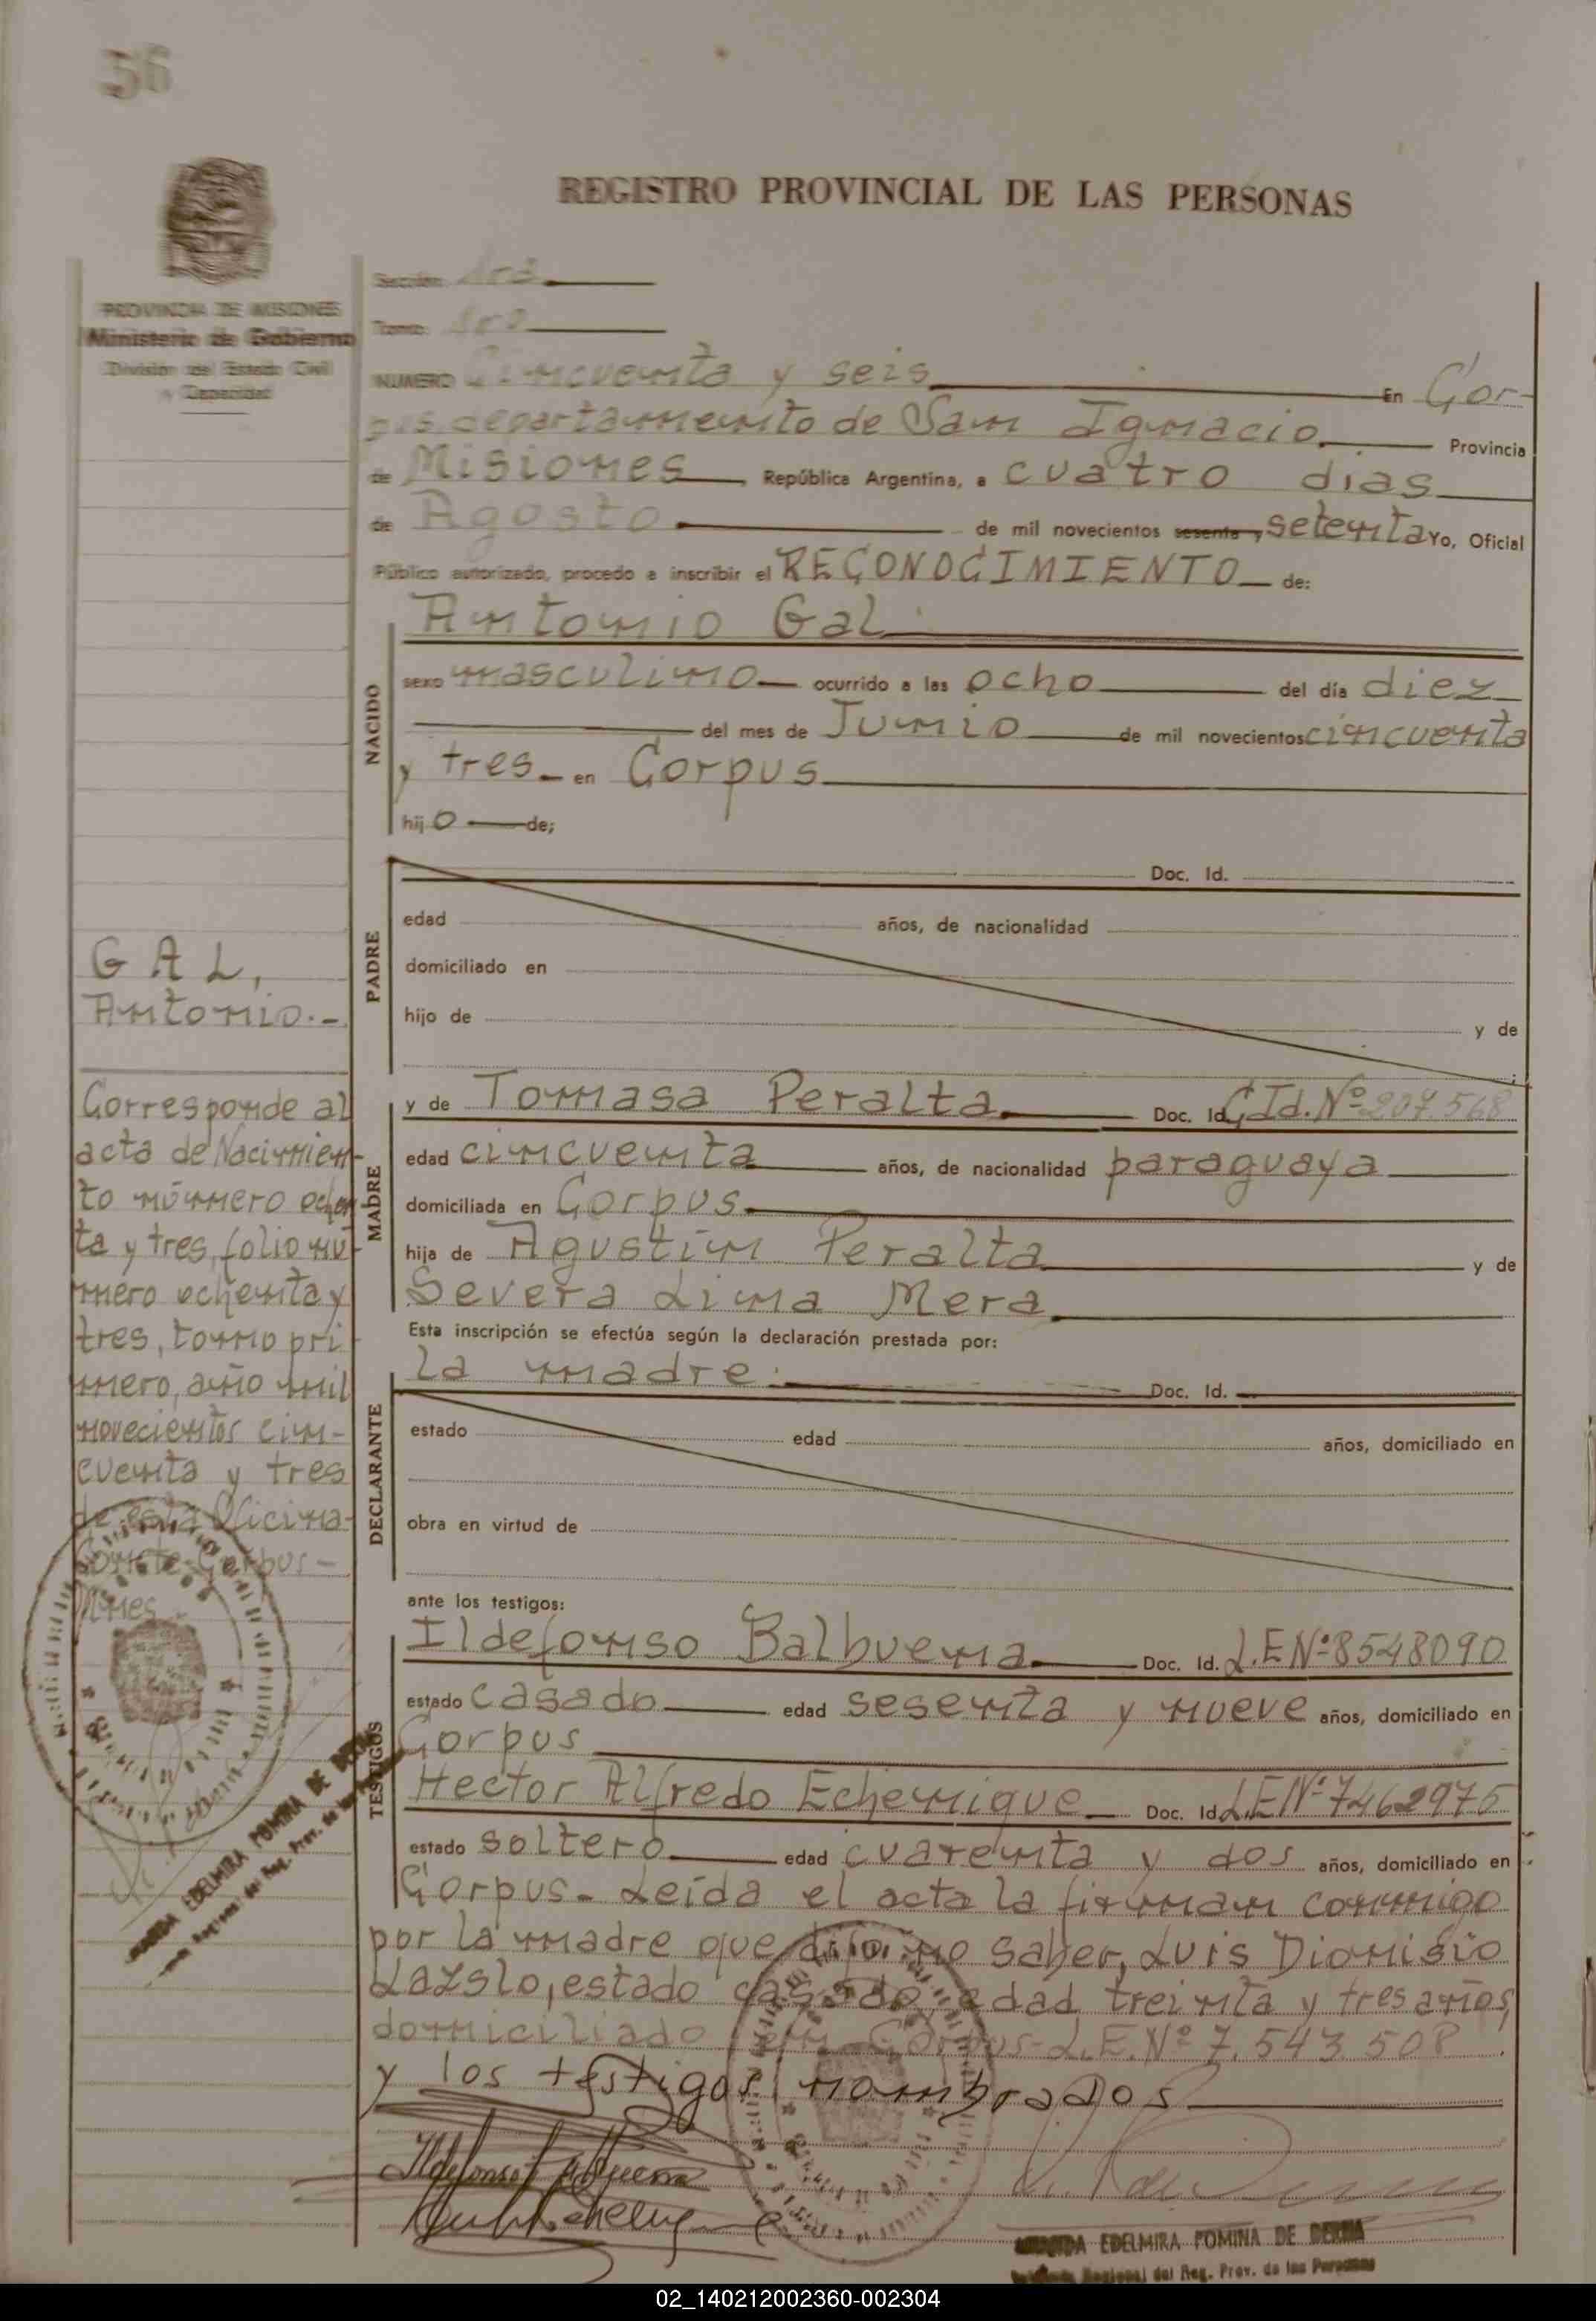 56
REGISTRO PROVINCIAL DE LAS PERSONAS
PROVINCIA DE MISIONES
Ministerio de Gobierno
División del Estado Civil
y Capacidad
Sección 1ra
Tomo 1ro
NUMERO Cincuenta y seis En Cor-
pus departamento de San Ignacio. Provincia
de Misiones República Argentina, a cuatro días
de Agosto de mil novecientos sesenta y setenta Yo, Oficial
Público autorizado, procedo a inscribir el RECONOCIMIENTO de:
Antonio Gal
NACIDO
sexo masculino ocurrido a las ocho del día diez
del mes de Junio de mil novecientos cincuenta
y tres en Corpus
hijo de;
PADRE
Doc. Id.
edad años, de nacionalidad
domiciliado en
hijo de y de
MADRE
y de Tomasa Peralta. Doc. Id. C.Id. Nº 207.568
edad cincuenta años, de nacionalidad paraguaya
domiciliada en Corpus.
hija de Agustin Peralta y de
Severa Lina Mera
Esta inscripción se efectúa según la declaración prestada por:
la madre.
DECLARANTE
Doc. Id.
estado edad años, domiciliado en
obra en virtud de
ante los testigos:
TESTIGOS
Ildefonso Balbuena Doc. Id. L.E Nº 8548090
estado casado edad sesenta y nueve años, domiciliado en
Corpus
Hector Alfredo Echenique Doc. Id. L.E Nº 7462975
estado soltero edad cuarenta y dos años, domiciliado en
Corpus- Leída el acta la firman conmigo
por la madre que dijo no saber, Luis Dionisio
Lazslo, estado casado, edad treinta y tres años,
domiciliado en Corpus- L.E. Nº 7.543.508
y los testigos nombrados
EDELMIRA POMINA DE BERNA
Regional del Reg. Prov. de las Personas
GAL,
Antonio.-
Corresponde al
acta de Nacimien-
to número ochen-
ta y tres, folio nú-
mero ochenta y
tres, tomo pri
mero, año mil
novecientos cin-
cuenta y tres
de esta Oficina-
Conste-Corpus-
Mnes.
EDELMIRA POMINA DE BERNA
Reg. Prov. de las
02_140212002360-002304